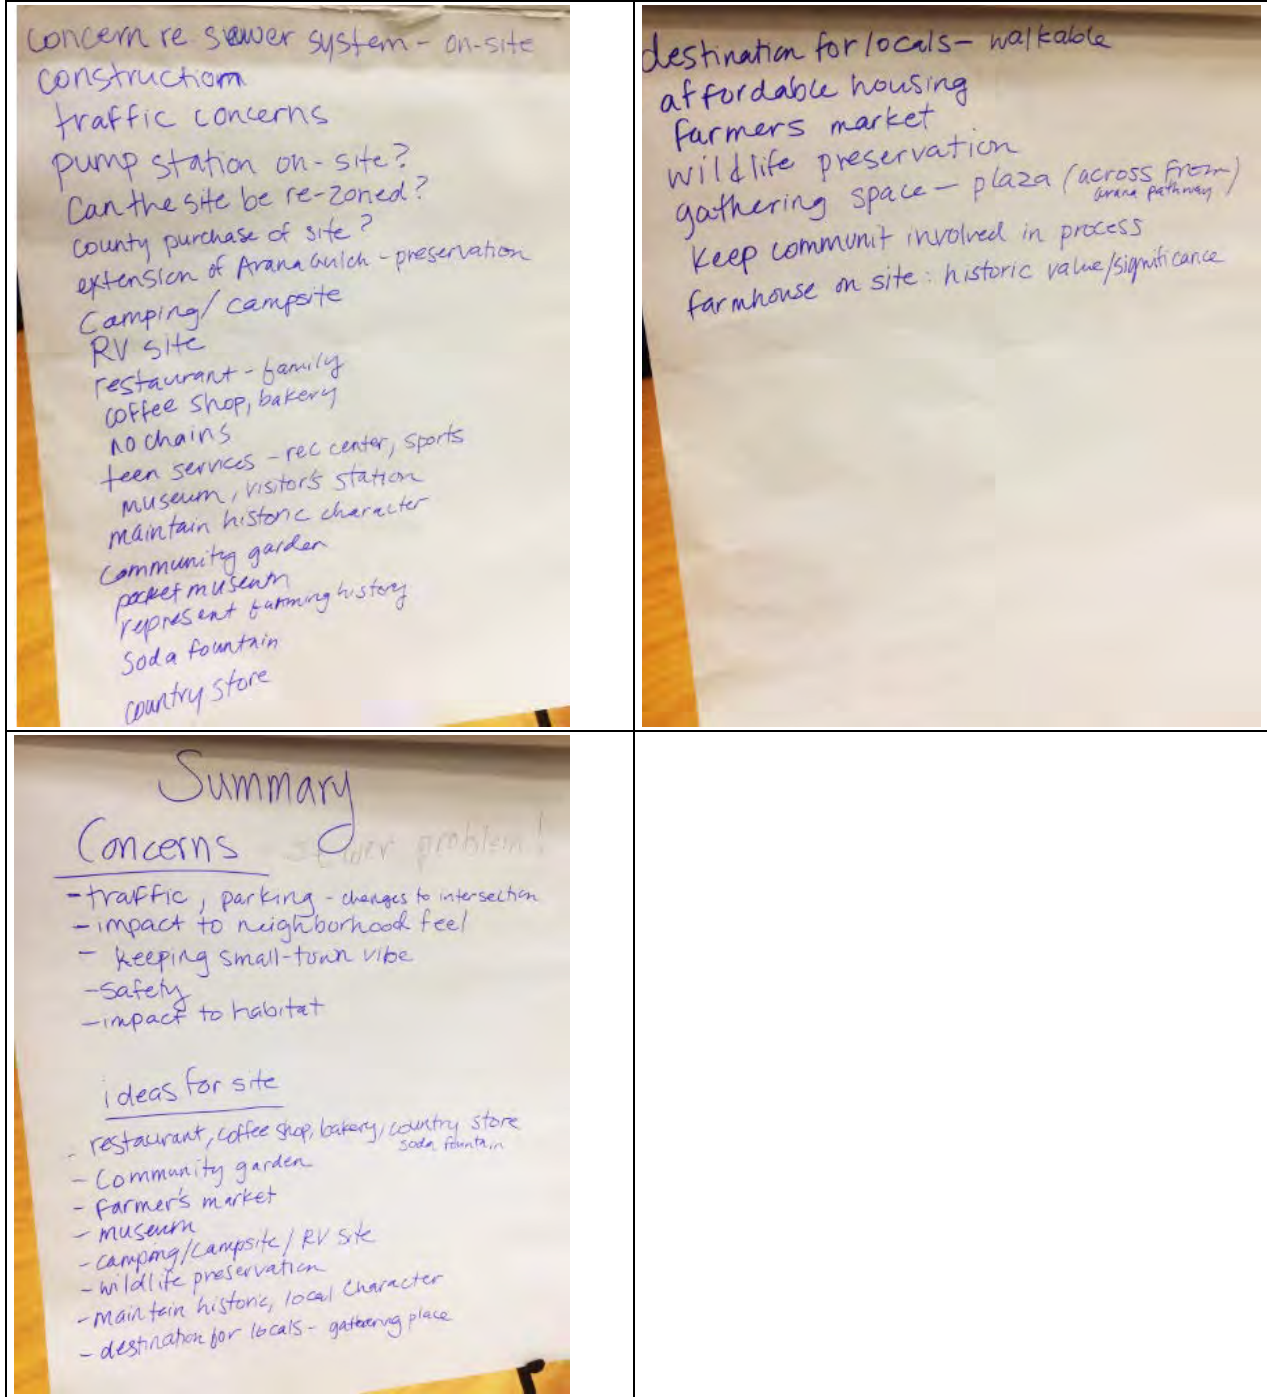 concern re sewer system - on-site
construction
traffic concerns
pump station on-site?
Can the site be re-zoned?
county purchase of site?
extension of Arana Gulch - preservation
Camping/campsite
RV site
restaurant - family
coffee shop, bakery
no chains
teen services - rec center, sports
museum, visitor's station
maintain historic character
community garden
pocket museum
represent farming history
Soda fountain
country store
destination for locals - walkable
affordable housing
farmers market
wildlife preservation
gathering space - plaza (across from
arana pathway)
Keep communit involved in process
farmhouse on site: historic value/significance
Summary
Concerns
sewer problem!
- traffic, parking - changes to intersection
- impact to neighborhood feel
- keeping small-town vibe
- safety
- impact to habitat
ideas for site
- restaurant, coffee shop, bakery, country store
soda fountain
- Community garden
- Farmer's market
- museum
- camping/campsite/RV site
- wildlife preservation
- maintain historic, local character
- destination for locals - gathering place